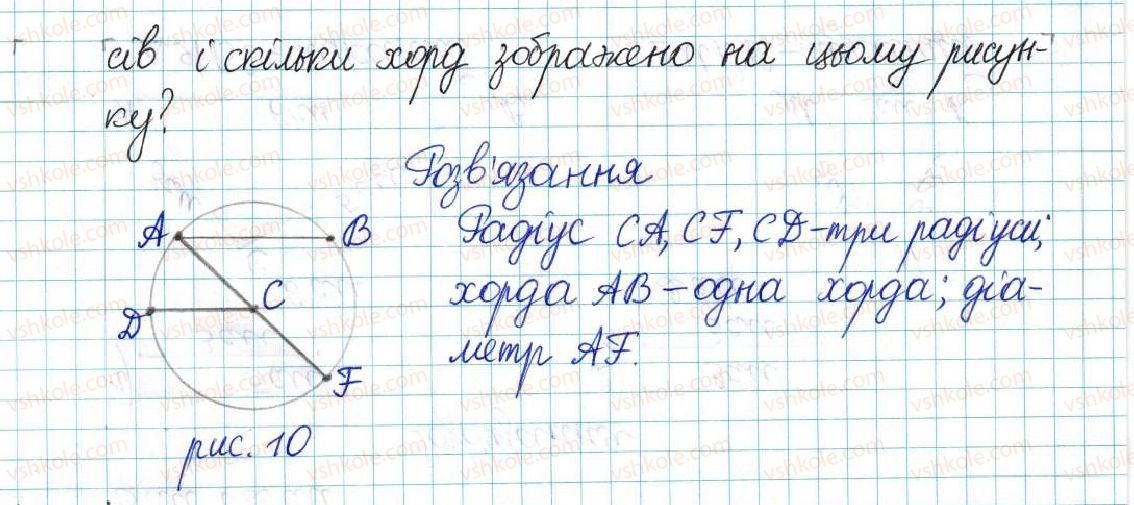 сів і скільки хорд зображено на цьому рисун-
ку?
Розв'язання
A B Радіус CA, CF, CD - три радіуси;
C хорда AB - одна хорда; діа-
D метр AF.
F
рис. 10